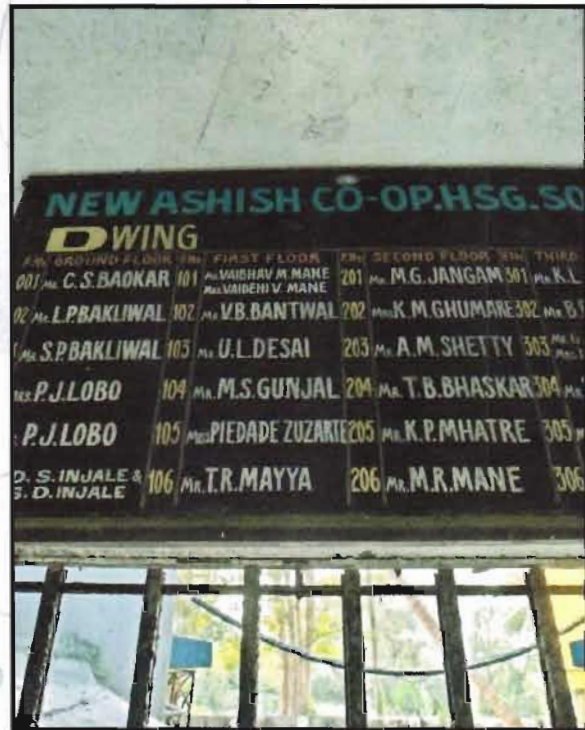 NEW ASHISH CO-OP.HSG.SO
D WING
GROUND FLOOR FIRST FLOOR SECOND FLOOR THIRD
001 MR. C.S.BAOKAR 101 MR. VAIBHAV M. MANE 201 MR. M.G.JANGAM 301 MR. K.L.
MRS. VAIDEHI V. MANE
02 MR. L.P.BAKLIWAL 102 MR. V.B.BANTWAL 202 MRS. K.M.GHUMARE 302 MR.
MR. S.P.BAKLIWAL 103 MR. U.L.DESAI 203 MR. A.M.SHETTY 303
P.J.LOBO 104 MR. M.S.GUNJAL 204 MR. T.B.BHASKAR 304
P.J.LOBO 105 MRS. PIEDADE ZUZARTE 205 MR. K.P.MHATRE 305
D. S. INJALE & 106 MR. T.R.MAYYA 206 MR. M.R.MANE 306
S. D. INJALE